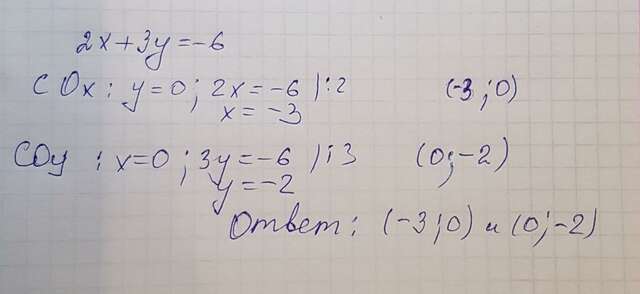 2x+3y=-6
С Ox: y=0; 2x=-6 |:2 (-3;0)
x=-3
С Oy: x=0; 3y=-6 |:3 (0;-2)
y=-2
Ответ: (-3;0) и (0;-2)